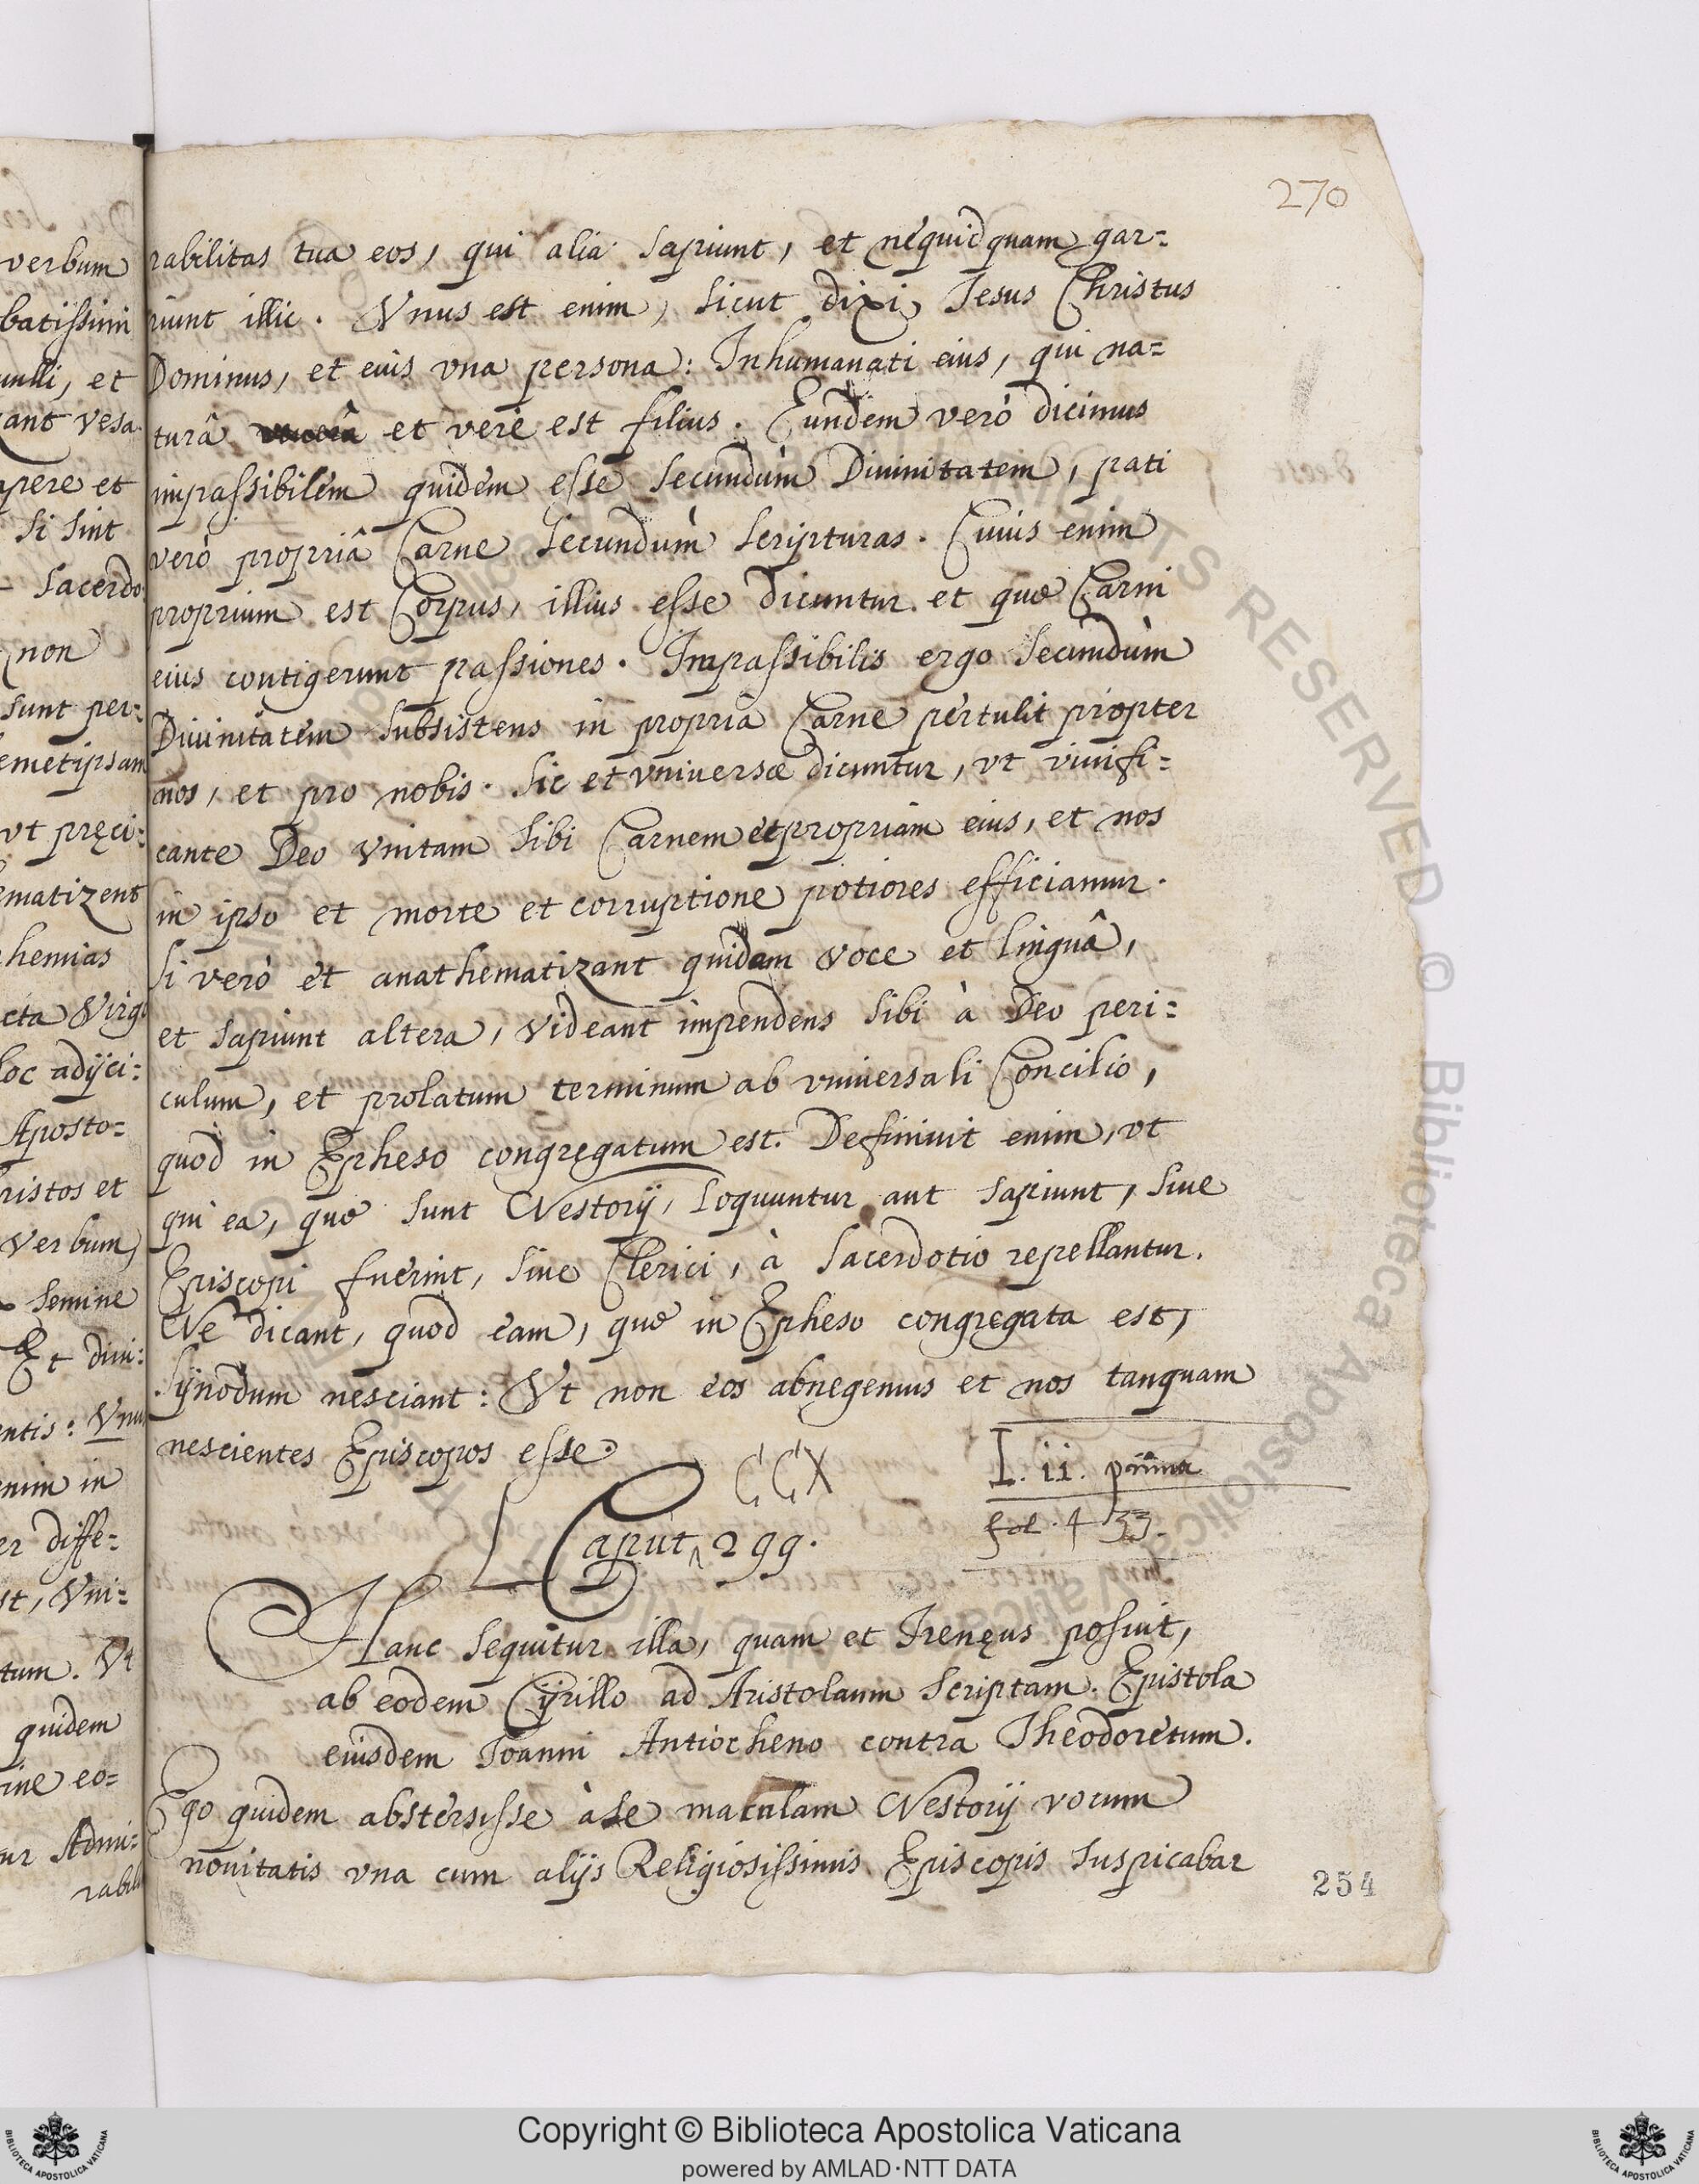 270
rabilitas tua eos, qui alia sapiunt, et nequidquam gar=
riunt illic. Vnus est enim, sicut dixi, Jesus Christus
Dominus, et eius vna persona: Inhumanati eius, qui na=
turâ et verè est filius. Eundem verò dicimus
impassibilem quidem esse secundùm Diuinitatem, pati
verò propriâ Carne secundùm scripturas. Cuius enim
proprium est Corpus, illius esse dicuntur et quæ Carni
eius contigerunt passiones. Impassibilis ergo secundùm
Diuinitatem subsistens in propria Carne pertulit propter
nos, et pro nobis. Sic et vniuersæ dicuntur, vt viuifi=
cante Deo vnitam sibi Carnem et propriam eius, et nos
in ipso et morte et corruptione potiores efficiamur.
Si verò et anathematizant quidam voce et linguâ,
et sapiunt altera, videant impendens sibi à Deo peri=
culum, et prolatum terminum ab vniuersali Concilio,
quod in Epheso congregatum est. Definiuit enim, vt
qui ea, quæ sunt Nestorij, loquuntur aut sapiunt, siue
Episcopi fuerint, siue Clerici, à Sacerdotio repellantur.
Ne dicant, quod eam, quæ in Epheso congregata est,
Sÿnodum nesciant: Vt non eos abnegemus et nos tanquam
nescientes Episcopos esse.
CCX
I. ii. prima
fol. 433.
Caput 299.
Hanc sequitur illa, quam et Irenęus posuit,
ab eodem Cÿrillo ad Aristolaum scriptam. Epistola
eiusdem Joanni Antiocheno contra Theodoretum.
Ego quidem abstersisse à se maculam Nestorij vocum
nouitatis vna cum alijs Religiosissimis Episcopis suspicabar
254
verbum
batissimi
et
vesa
apere et
si sint
Sacerdo
non
sunt per=
emetipsam
vt pręci=
ematizent
hemias
cta Virgi
hoc adijci=
Aposto=
ristos et
verbum
semine
Et diui=
entis: Vnu
enim in
er diffe=
st, Vni=
tum. Vt
quidem
eo=
ur Admi=
rabili
Copyright © Biblioteca Apostolica Vaticana
powered by AMLAD·NTT DATA
BIBLIOTECA APOSTOLICA VATICANA
BIBLIOTECA APOSTOLICA VATICANA